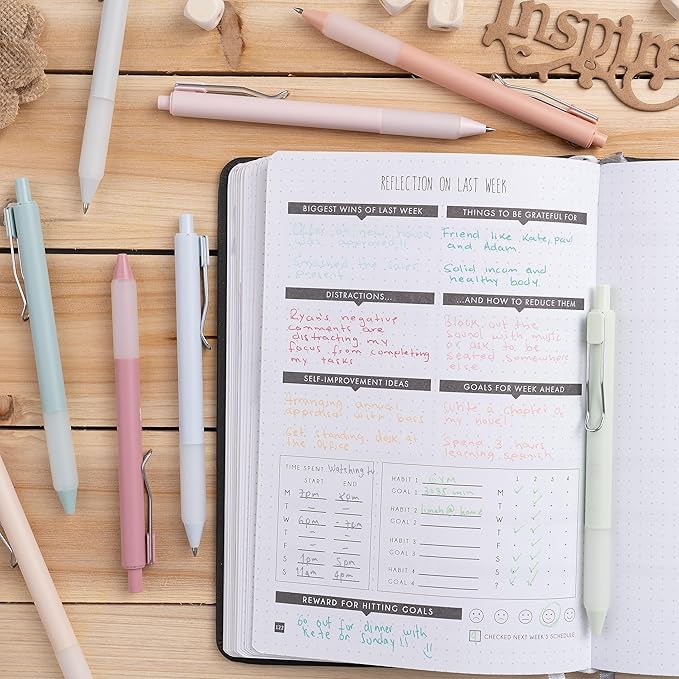 Inspire
REFLECTION ON LAST WEEK
BIGGEST WINS OF LAST WEEK
Offer of new house
was approved!!
Smashed the sales
present
THINGS TO BE GRATEFUL FOR
Friend like Kate, paul
and Adam
Solid incum and
healthy body
DISTRACTIONS...
Ryan's negative
comments are
distracting my
focus from completing
my tasks
...AND HOW TO REDUCE THEM
Block out the
sound with music
or ask to be
seated somewhere
else.
SELF-IMPROVEMENT IDEAS
Arranging annual
appraisal with bass
Get standing desk at
the office
GOALS FOR WEEK AHEAD
Write a chapter of
my novel
Spend 3 hours
learning spanish
TIME SPENT: Watching tv
START END
M 7pm
T – –
W 6pm - 7pm
T – –
F – –
S 1pm 5pm
S 11am 4pm
HABIT 1 GYM
GOAL 1 min
HABIT 2 lunch @ home
GOAL 2
HABIT 3
GOAL 3
HABIT 4
GOAL 4
1 2 3 4
M
T
W
T
F
S
S
?
REWARD FOR HITTING GOALS
Go out for dinner with
kate on Sunday!!
CHECKED NEXT WEEK'S SCHEDULE
122